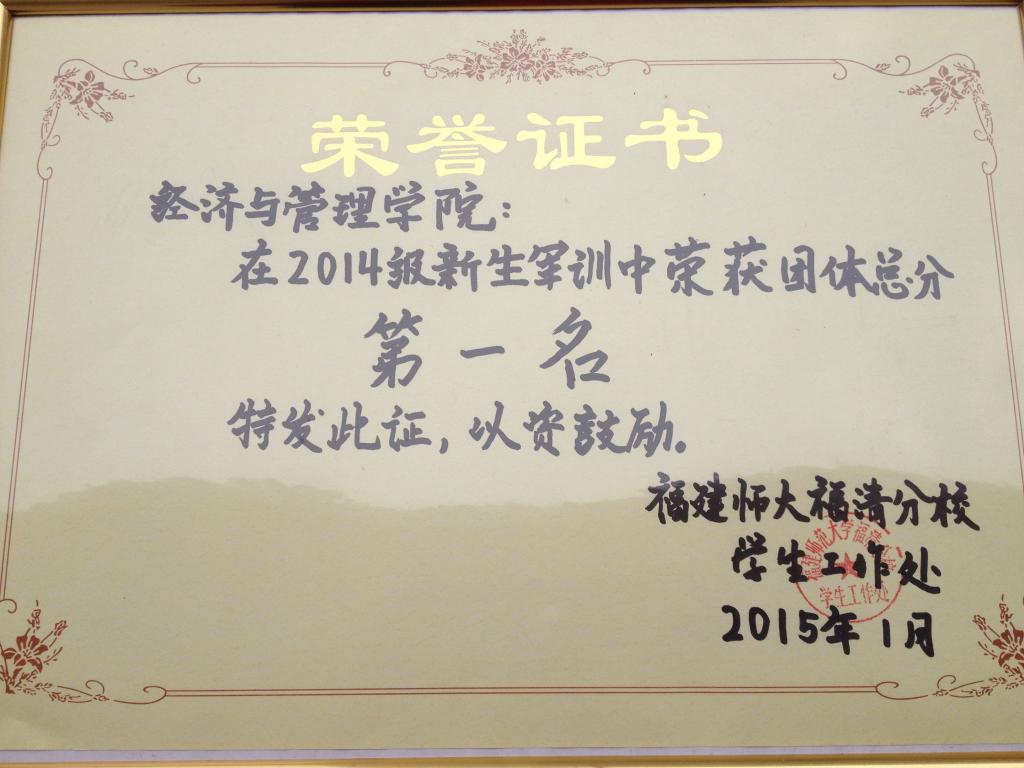 荣誉证书
经济与管理学院:
在2014级新生军训中荣获团体总分
第一名
特发此证,以资鼓励。
福建师大福清分校
学生工作处
2015年1月
福建师范大学福清分校
学生工作处